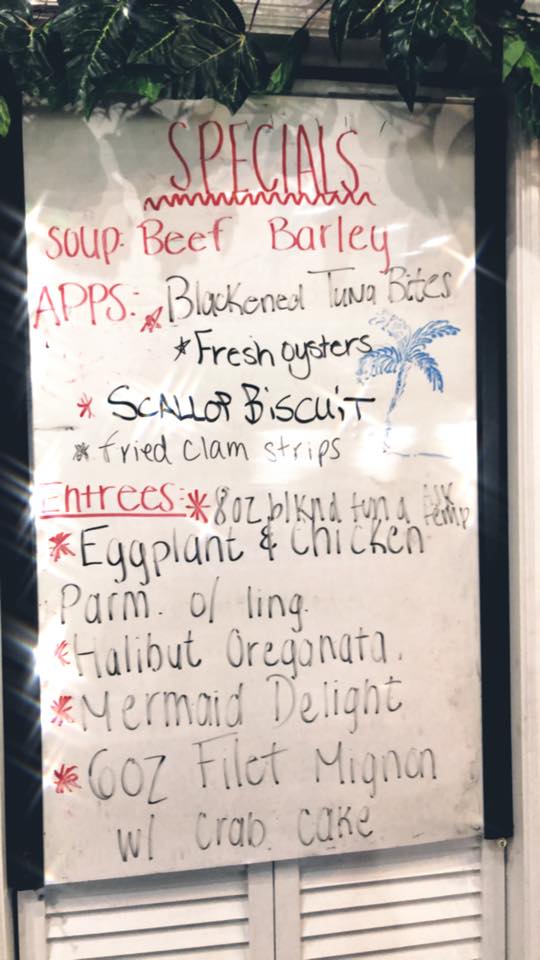 SPECIALS
Soup: Beef Barley
APPS: * Blackened Tuna Bites
* Fresh oysters
* SCALLOP BiSCUiT
* fried clam strips
Entrees: * 8oz blknd tuna ask temp
* Eggplant & Chicken
Parm. o/ ling.
* Halibut Oreganata.
* Mermaid Delight
* 6oz Filet Mignon
w/ Crab cake